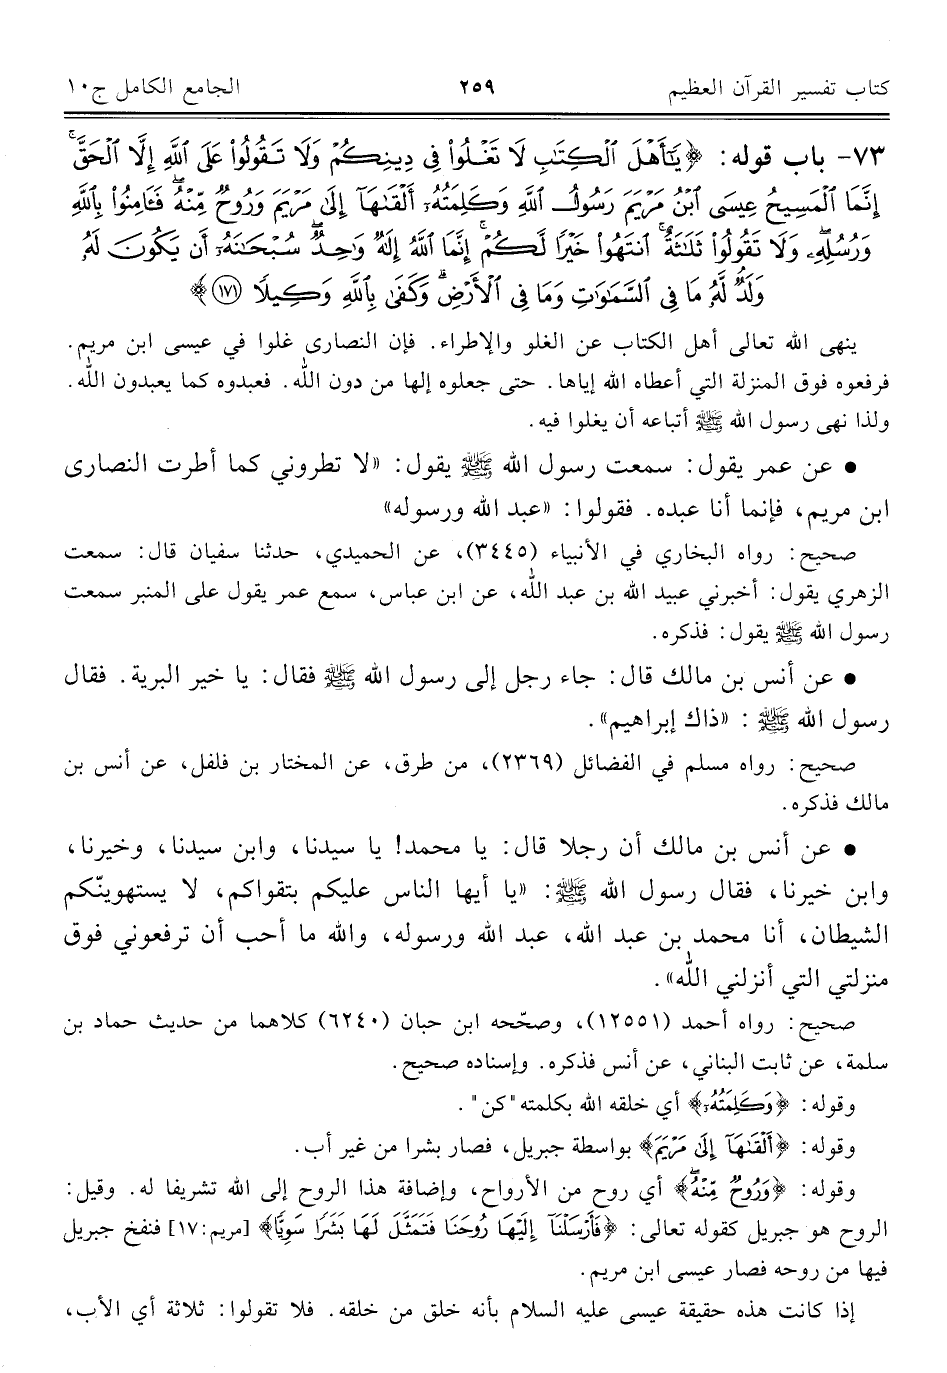 كتاب تفسير القرآن العظيم ٢٥٩ الجامع الكامل ج١٠
٧٣- باب قوله: ﴿يَٰٓأَهۡلَ ٱلۡكِتَٰبِ لَا تَغۡلُواْ فِي دِينِكُمۡ وَلَا تَقُولُواْ عَلَى ٱللَّهِ إِلَّا ٱلۡحَقَّۚ
إِنَّمَا ٱلۡمَسِيحُ عِيسَى ٱبۡنُ مَرۡيَمَ رَسُولُ ٱللَّهِ وَكَلِمَتُهُۥٓ أَلۡقَىٰهَآ إِلَىٰ مَرۡيَمَ وَرُوحٞ مِّنۡهُۖ فَـَٔامِنُواْ بِٱللَّهِ
وَرُسُلِهِۦۖ وَلَا تَقُولُواْ ثَلَٰثَةٌۚ ٱنتَهُواْ خَيۡرٗا لَّكُمۡۚ إِنَّمَا ٱللَّهُ إِلَٰهٞ وَٰحِدٞۖ سُبۡحَٰنَهُۥٓ أَن يَكُونَ لَهُۥ
وَلَدٞۘ لَّهُۥ مَا فِي ٱلسَّمَٰوَٰتِ وَمَا فِي ٱلۡأَرۡضِۗ وَكَفَىٰ بِٱللَّهِ وَكِيلٗا ١٧١﴾
ينهى الله تعالى أهل الكتاب عن الغلو والإطراء. فإن النصارى غلوا في عيسى ابن مريم.
فرفعوه فوق المنزلة التي أعطاه الله إياها. حتى جعلوه إلها من دون الله. فعبدوه كما يعبدون الله.
ولذا نهى رسول الله ﷺ أتباعه أن يغلوا فيه.
• عن عمر يقول: سمعت رسول الله ﷺ يقول: «لا تطروني كما أطرت النصارى
ابن مريم، فإنما أنا عبده. فقولوا: «عبد الله ورسوله»
صحيح: رواه البخاري في الأنبياء (٣٤٤٥)، عن الحميدي، حدثنا سفيان قال: سمعت
الزهري يقول: أخبرني عبيد الله بن عبد الله، عن ابن عباس، سمع عمر يقول على المنبر سمعت
رسول الله ﷺ يقول: فذكره.
• عن أنس بن مالك قال: جاء رجل إلى رسول الله ﷺ فقال: يا خير البرية. فقال
رسول الله ﷺ : «ذاك إبراهيم».
صحيح: رواه مسلم في الفضائل (٢٣٦٩)، من طرق، عن المختار بن فلفل، عن أنس بن
مالك فذكره.
• عن أنس بن مالك أن رجلا قال: يا محمد! يا سيدنا، وابن سيدنا، وخيرنا،
وابن خيرنا، فقال رسول الله ﷺ: «يا أيها الناس عليكم بتقواكم، لا يستهوينّكم
الشيطان، أنا محمد بن عبد الله، عبد الله ورسوله، والله ما أحب أن ترفعوني فوق
منزلتي التي أنزلني الله».
صحيح: رواه أحمد (١٢٥٥١)، وصحّحه ابن حبان (٦٢٤٠) كلاهما من حديث حماد بن
سلمة، عن ثابت البناني، عن أنس فذكره. وإسناده صحيح.
وقوله: ﴿وَكَلِمَتُهُۥٓ﴾ أي خلقه الله بكلمته "كن" .
وقوله: ﴿أَلۡقَىٰهَآ إِلَىٰ مَرۡيَمَ﴾ بواسطة جبريل، فصار بشرا من غير أب.
وقوله: ﴿وَرُوحٞ مِّنۡهُۖ﴾ أي روح من الأرواح، وإضافة هذا الروح إلى الله تشريفا له. وقيل:
الروح هو جبريل كقوله تعالى: ﴿فَأَرۡسَلۡنَآ إِلَيۡهَا رُوحَنَا فَتَمَثَّلَ لَهَا بَشَرٗا سَوِيّٗا﴾ [مريم:١٧] فنفخ جبريل
فيها من روحه فصار عيسى ابن مريم.
إذا كانت هذه حقيقة عيسى عليه السلام بأنه خلق من خلقه. فلا تقولوا: ثلاثة أي الأب،